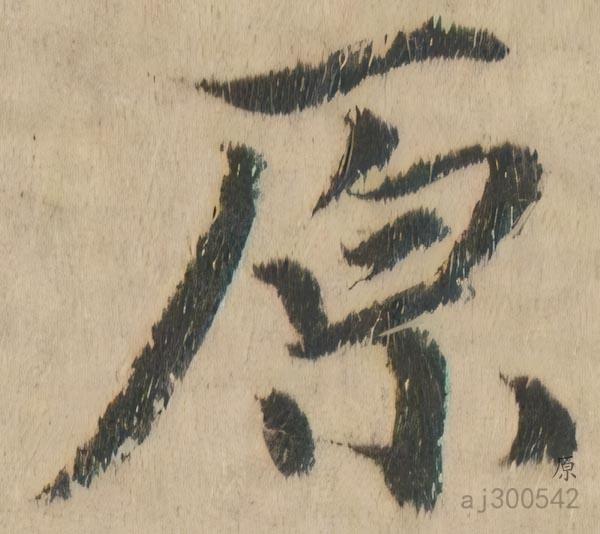 原
原
aj300542